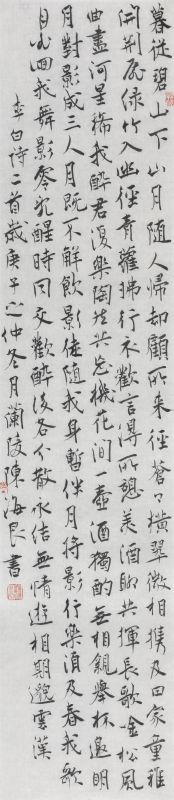 暮從碧山下山月隨人歸却顧所來徑蒼々橫翠微相携及田家童稚
開荆扉綠竹入幽徑青蘿拂行衣歡言得所憩美酒聊共揮長歌吟松風
曲盡河星稀我醉君復樂陶然共忘機花間一壺酒獨酌無相親舉杯邀明
月對影成三人月既不解飲影徒隨我身暫伴月將影行樂須及春我歌
月徘徊我舞影零亂醒時同交歡醉後各分散永結無情遊相期邈雲漢
李白詩二首歲庚子之仲冬月蘭陵陳海良書